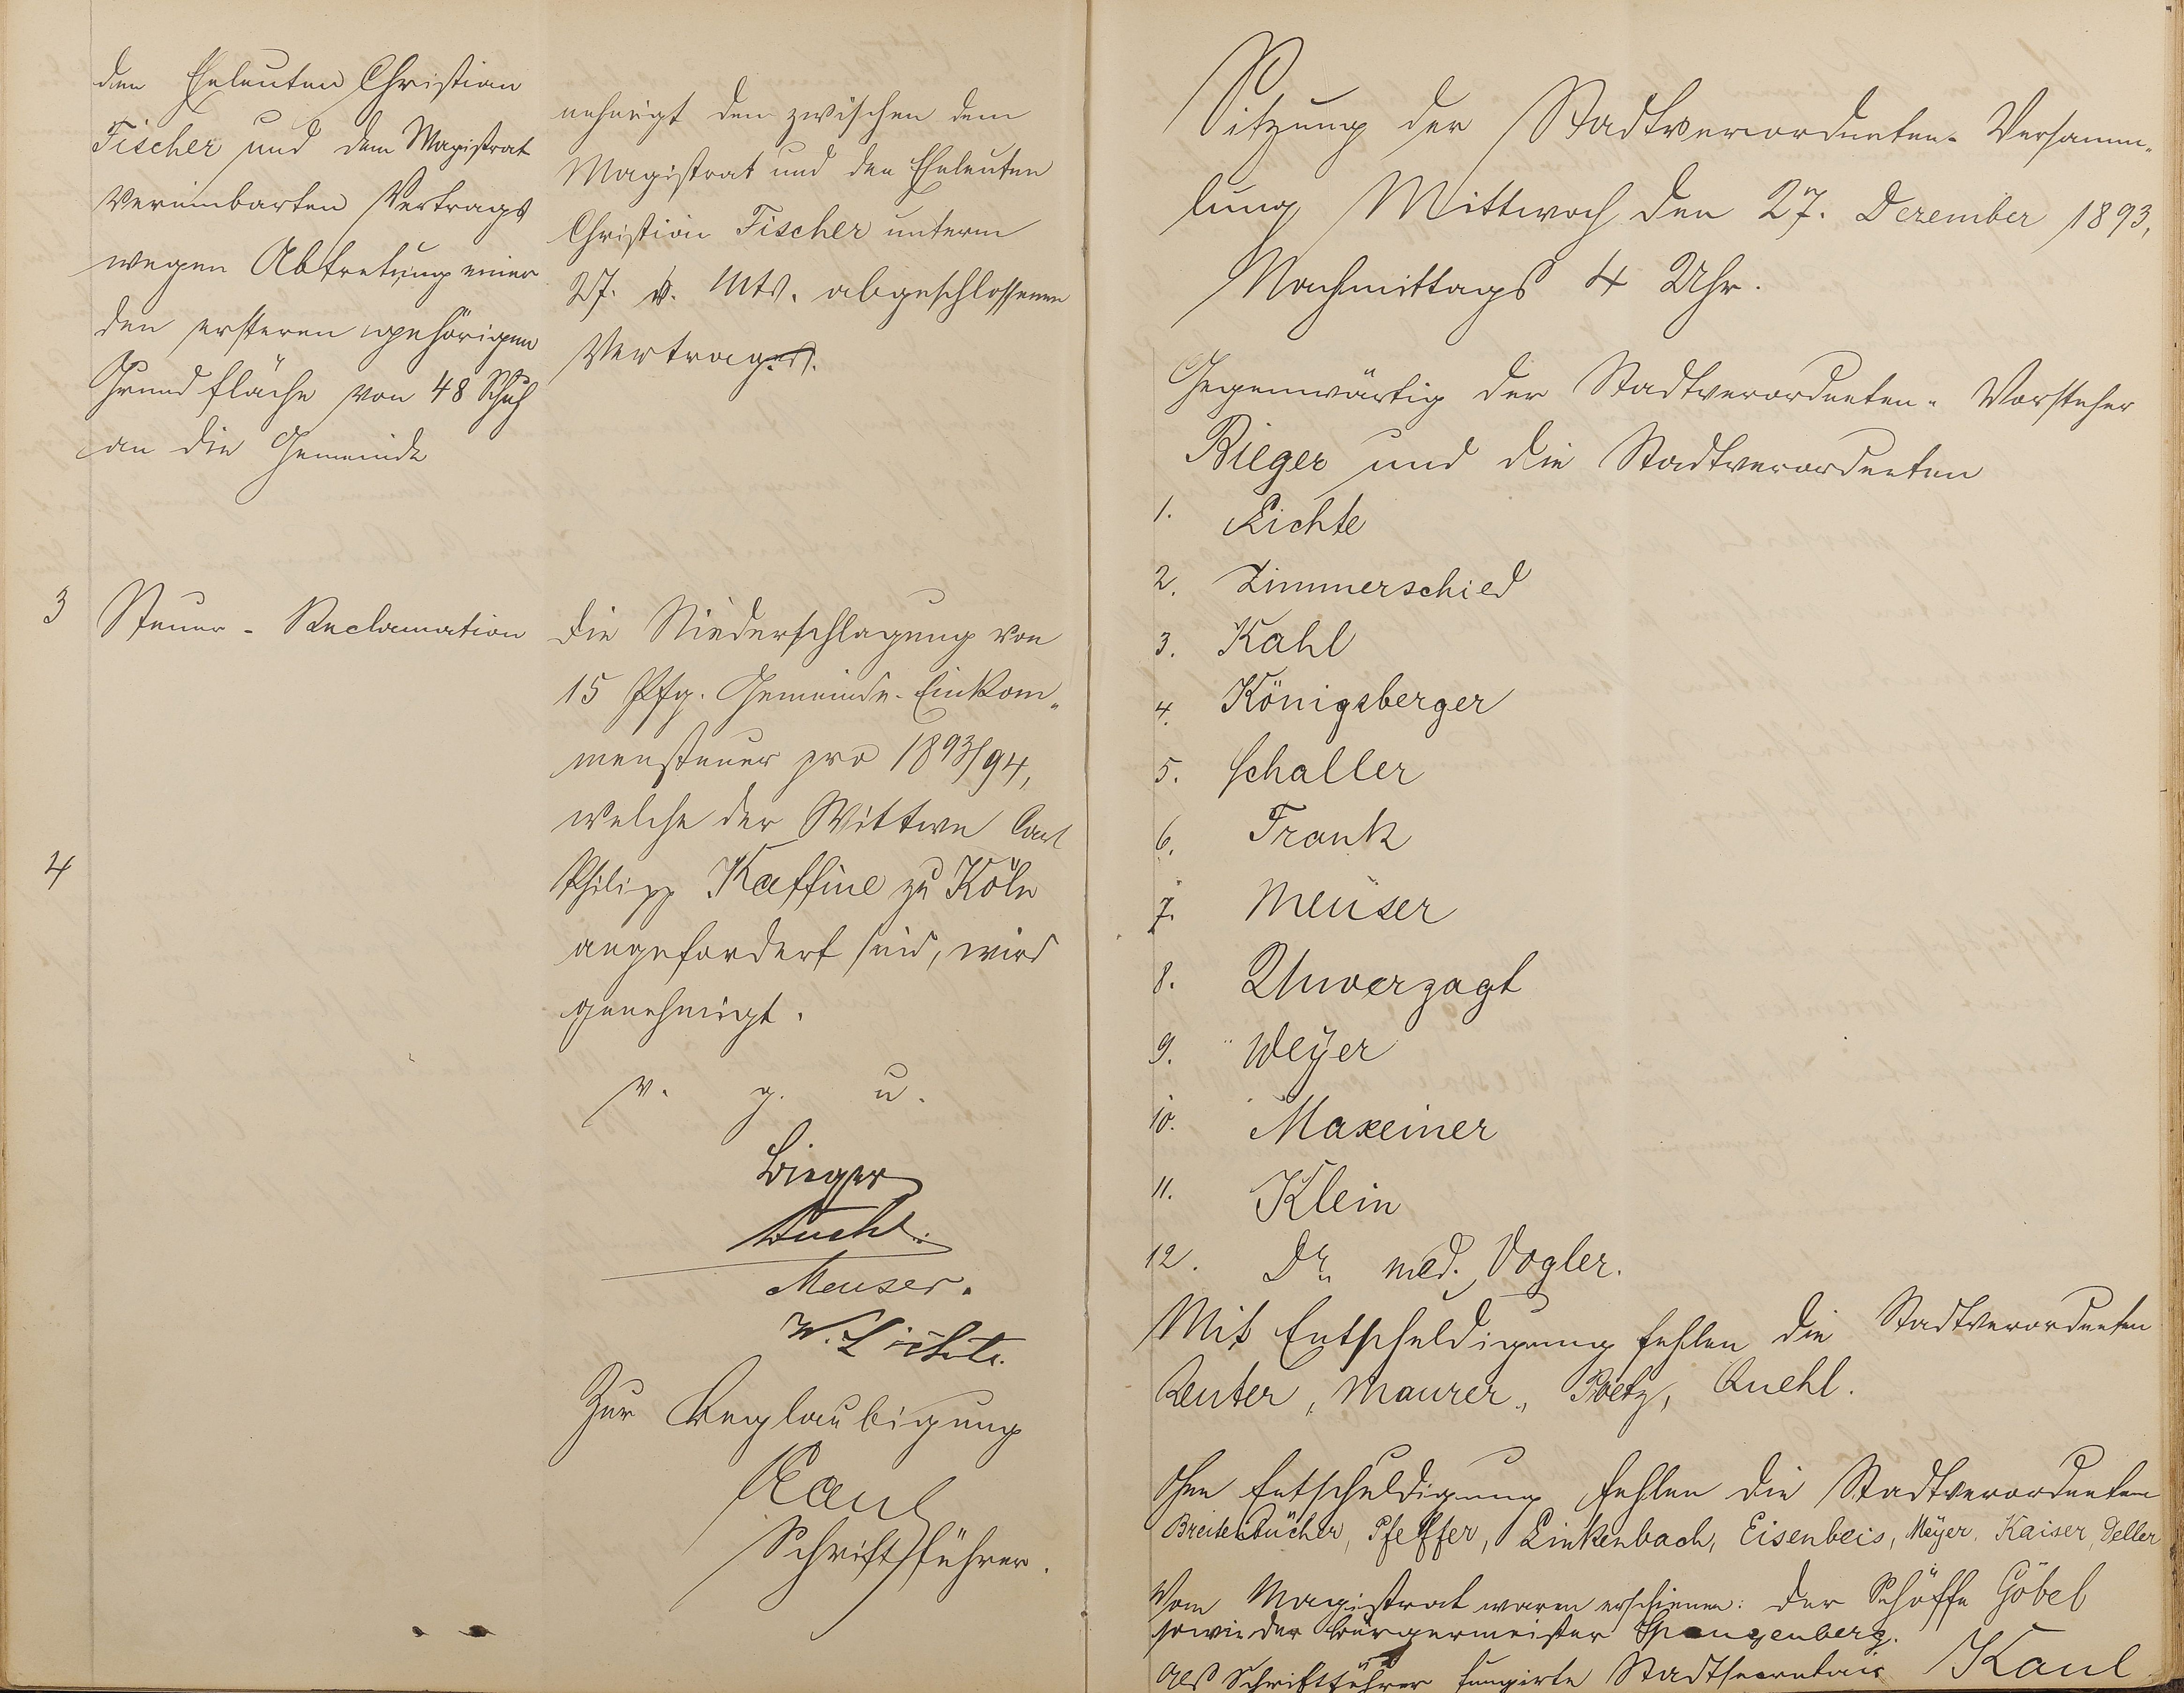 den Eheleuten Christian
Fischer und dem Magistrat
vereinbarten Vertrags
wegen Abtretung einer
den ersteren gehörigen
Grundfläche von 48 Schuh
an die Gemeinde
3 Steuer-Reclamation
4
nehmigt den zwischen dem
Magistrat und den Eheleuten
Christian Fischer unterm
27. v. Mts. abgeschlossenen
Vertrag.
Die Niederschlagung von
15 Pfg. Gemeinde-Einkom„
mensteuer pro 1893/94,
welche der Wittwe Carl
Philipp Kaffine zu Köln
angefordert sind, wird
genehmigt.
v. g. u.
Bieger
Kuehl.
Meuser.
W. Lichte.
Zur Beglaubigung
Kaul
Schriftführer.
Sitzung der Stadtverordneten-Versamm„
lung Mittwoch den 27. Dezember 1893,
Nachmittags 4 Uhr.
Gegenwärtig der Stadtverordneten-Vorsteher
Bieger und die Stadtverordneten
1. Lichte
2. Zimmerschied
3. Kahl
4. Königsberger
5. Schaller
6. Frank
7. Meuser
8. Unverzagt
9. Weÿer
10. Maxeiner
11. Klein
12. Dr. med. Vogler.
Mit Entschuldigung fehlen die Stadtverordneten
Reuter, Maurer, Poetz, Kuehl.
Ohne Entschuldigung fehlen die Stadtverordneten
Breitenbücher, Pfeffer, Linkenbach, Eisenbeis, Meÿer, Kaiser, Deller
Vom Magistrat waren erschienen: der Schöffe Göbel
sowie der Bürgermeister Spangenberg.
Als Schriftführer fungirte Stadtsecretair Kaul